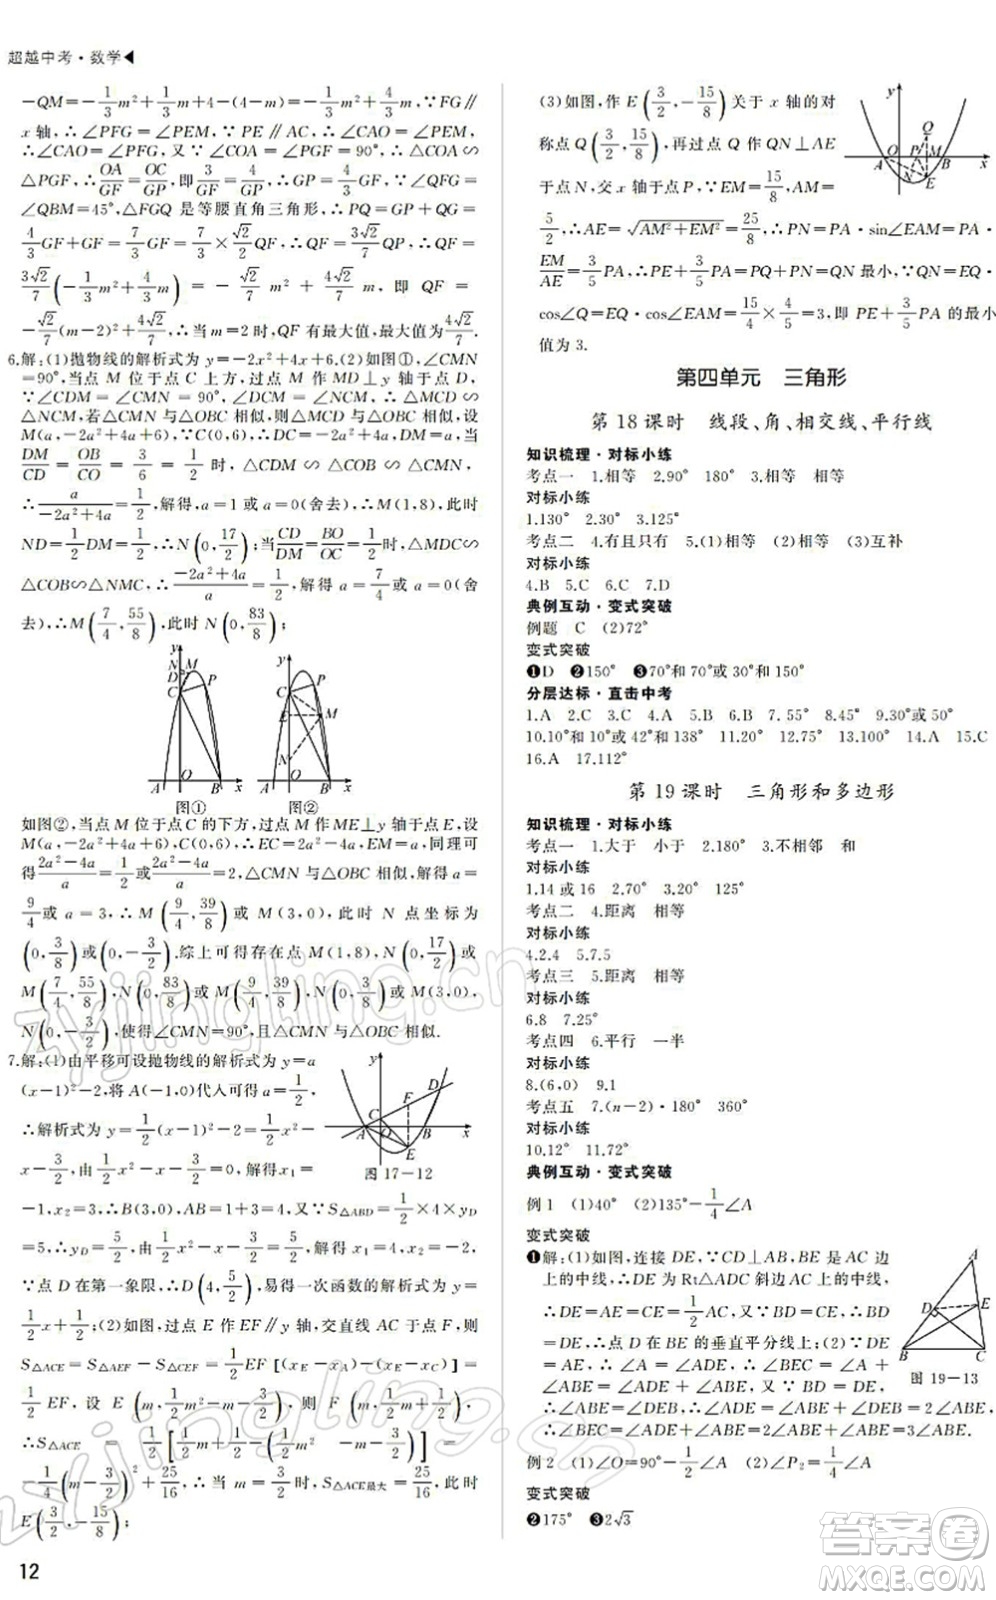 超越中考·数学◀
-QM=-1/3m²+1/3m+4-(4-m)=-1/3m²+4/3m,∵FG∥
x轴,∴∠PFG=∠PEM,∵PE∥AC,∴∠CAO=∠PEM,
∴∠CAO=∠PFG,又∵∠COA=∠PGF=90°,∴△CAO∽
△PGF,∴OA/GF=OC/GP,即3/GF=4/GP,∴GP=4/3GF,∵∠QFG=
∠QBM=45°,△FGQ是等腰直角三角形,∴PQ=GP+QG=
4/3GF+GF=7/3GF=7/3×√2/2QF,∴QF=3√2/7QP,∴QF=
3√2/7(-1/3m²+4/3m)=-√2/7m²+4√2/7m,即QF=
-√2/7(m-2)²+4√2/7,∴当m=2时,QF有最大值,最大值为4√2/7.
6.解:(1)抛物线的解析式为y=-2x²+4x+6.(2)如图①,∠CMN
=90°,当点M位于点C上方,过点M作MD⊥y轴于点D,
∵∠CDM=∠CMN=90°,∠DCM=∠NCM,∴△MCD∽
△NCM,若△CMN与△OBC相似,则△MCD与△NCM相似,设
M(a,-2a²+4a+6),C(0,6),∴DC=-2a²+4a,DM=a,当
DM/DC=OB/CO=3/6=1/2时,△COB∽△CDM∽△CMN,
∴a/(-2a²+4a)=1/2,解得,a=1或a=0(舍去),∴M(1,8),此时
ND=1/2DM=1/2,∴N(0,17/2);当CD/DM=BO/OC=1/2时,△MDC∽
△COB∽△NMC,∴(-2a²+4a)/a=1/2,解得a=7/4或a=0(舍
去),∴M(7/4,55/8),此时N(0,83/8);
y N M D C P A O B x
y C P E M N A O B x
图① 图②
如图②,当点M位于点C的下方,过点M作ME⊥y轴于点E,设
M(a,-2a²+4a+6),C(0,6),∴EC=2a²-4a,EM=a,同理可
得(2a²-4a)/a=1/2或(2a²-4a)/a=2,△CMN与△OBC相似,解得a=
9/4或a=3,∴M(9/4,39/8)或M(3,0),此时N点坐标为
(0,3/8)或(0,-3/2).综上可得存在点M(1,8),N(0,17/2)或
M(7/4,55/8),N(0,83/8)或M(9/4,39/8),N(0,3/8)或M(3,0),
N(0,-3/2),使得∠CMN=90°,且△CMN与△OBC相似.
7.解:(1)由平移可设抛物线的解析式为y=a
(x-1)²-2,将A(-1,0)代入可得a=1/2,
∴解析式为y=1/2(x-1)²-2=1/2x²-
x-3/2,由1/2x²-x-3/2=0,解得x₁=
y D F C A O B x E
图17-12
-1,x₂=3,∴B(3,0),AB=1+3=4,又∵S△ABD=1/2×4×y_D
=5,∴y_D=5/2,∴1/2x²-x-3/2=5/2,解得x₁=4,x₂=-2,
∵点D在第一象限,∴D(4,5/2),易得一次函数的解析式为y=
1/2x+1/2;(2)如图,过点E作EF∥y轴,交直线AC于点F,则
S△ACE=S△AEF-S△CEF=1/2EF[(x_E-x_A)-(x_E-x_C)]=
1/2EF,设E(m,1/2m²-m-3/2),则F(m,1/2m+1/2),
∴S△ACE=1/2[1/2m+1/2-(1/2m²-m-3/2)]=
-1/4(m-3/2)²+25/16,∴当m=3/2时,S△ACE最大=25/16,此时
E(3/2,-15/8);
12
(3)如图,作E(3/2,-15/8)关于x轴的对
称点Q(3/2,15/8),再过点Q作QN⊥AE
于点N,交x轴于点P,∵EM=15/8,AM=
y Q A O P M B x N E
5/2,∴AE=√(AM²+EM²)=25/8,∴PN=PA·sin∠EAM=PA·
EM/AE=3/5PA,∴PE+3/5PA=PQ+PN=QN最小,∵QN=EQ·
cos∠QEN=EQ·cos∠EAM=15/4×4/5=3,即PE+3/5PA的最小
值为3.
第四单元 三角形
第18课时 线段、角、相交线、平行线
知识梳理·对标小练
考点一 1.相等 2.90° 180° 3.相等 相等
对标小练
1.130° 2.30° 3.125°
考点二 4.有且只有 5.(1)相等 (2)相等 (3)互补
对标小练
4.B 5.C 6.C 7.D
典例互动·变式突破
例题 C (2)72°
变式突破
❶D ❷150° ❸70°和70°或30°和150°
分层达标·直击中考
1.A 2.C 3.C 4.A 5.B 6.B 7.55° 8.45° 9.30°或50°
10.10°和10°或42°和138° 11.20° 12.75° 13.100° 14.A 15.C
16.A 17.112°
第19课时 三角形和多边形
知识梳理·对标小练
考点一 1.大于 小于 2.180° 3.不相邻 和
对标小练
1.14或16 2.70° 3.20° 125°
考点二 4.距离 相等
对标小练
4.2.4 5.7.5
考点三 5.距离 相等
对标小练
6.8 7.25°
考点四 6.平行 一半
对标小练
8.(6,0) 9.1
考点五 7.(n-2)·180° 360°
对标小练
10.12° 11.72°
典例互动·变式突破
例1 (1)40° (2)135°-1/4∠A
变式突破
❶解:(1)如图,连接DE,∵CD⊥AB,BE是AC边
上的中线,∴DE为Rt△ADC斜边AC上的中线,
∴DE=AE=CE=1/2AC,又∵BD=1/2AC,∴BD=
DE,∴点D在BE的垂直平分线上;(2)∵DE=
AE,∴∠A=∠ADE,∵∠BEC=∠A+∠ABE,
∠ADE=∠ABE+∠DEB,又∵BD=DE,∴
∠ABE=∠DEB,∴∠ADE=∠ABE+∠DEB=2∠ABE,
∴∠BEC=∠A+∠ABE=2∠ABE+∠ABE=3∠ABE.
A D E B C
图19-13
例2 (1)∠O=90°-1/2∠A (2)∠P₂=1/4∠A
变式突破
❷175° ❸2√3
zyjingling.cn
zyjingling.cn
答案圈
MXQE.COM